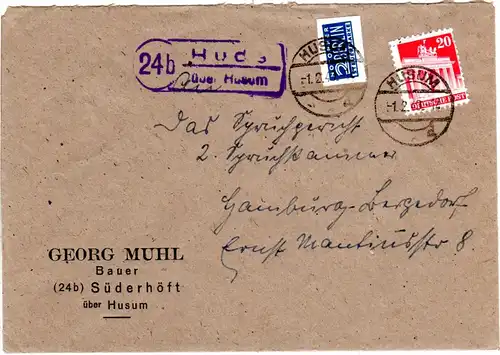 24b Hude
über Husum
NOTOPFER
2 BERLIN
STEUERMARKE
HUSUM
-1.2.4
20
DEUTSCHE POST
HUSUM
-1.2.
Das Spruchgericht
2. Spruchkammer
Hamburg-Bergedorf
Ernst Mantiusstr 8
GEORG MUHL
Bauer
(24b) Süderhöft
über Husum